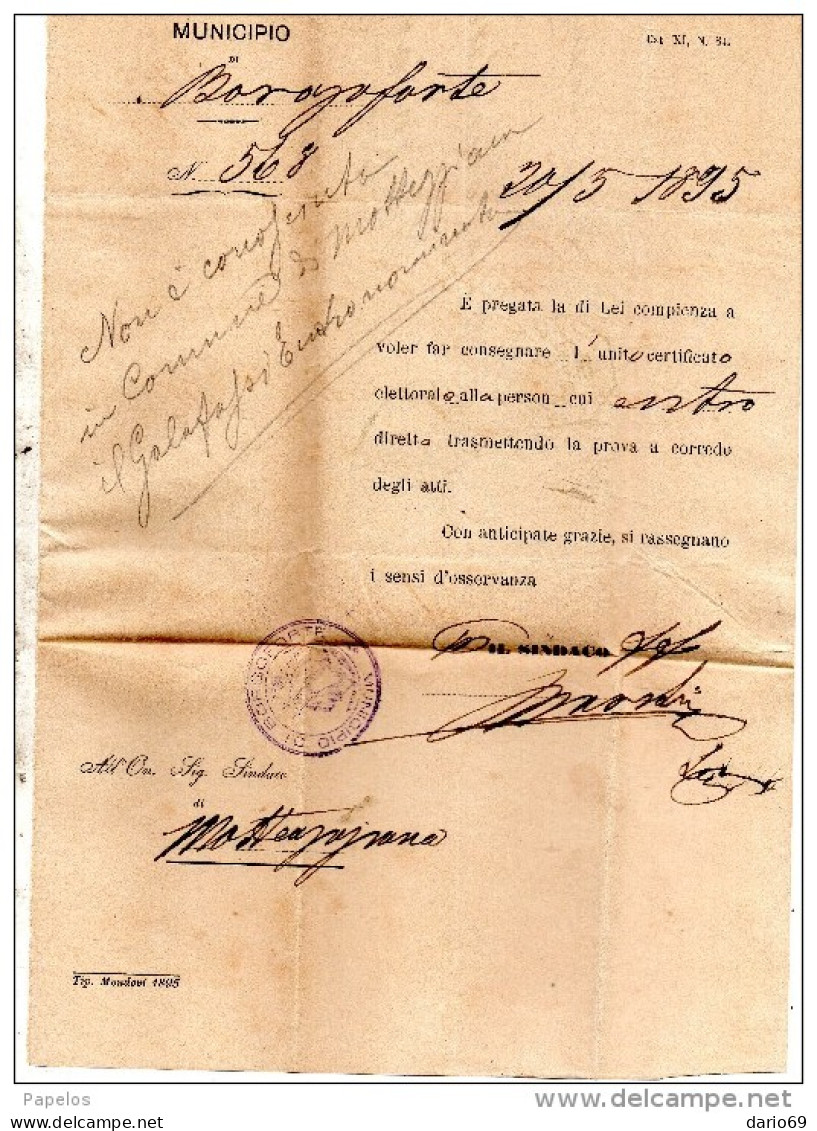 MUNICIPIO
DI
Borgoforte
N. 568
20/5 1895
Non è conosciuto
in Comune di Motteggiana
il Galafassi Entronominato
È pregata la di Lei compienza a
voler far consegnare l'unito certificato
elettorale alla person cui entro
diretto trasmettendo la prova a corredo
degli atti.
Con anticipate grazie, si rassegnano
i sensi d'osservanza
IL SINDACO
MUNICIPIO DI BORGOFORTE
All'On. Sig. Sindaco
di
Motteggiana
Tip. Mondovì 1895
Papelos
delcampe.net
dario69